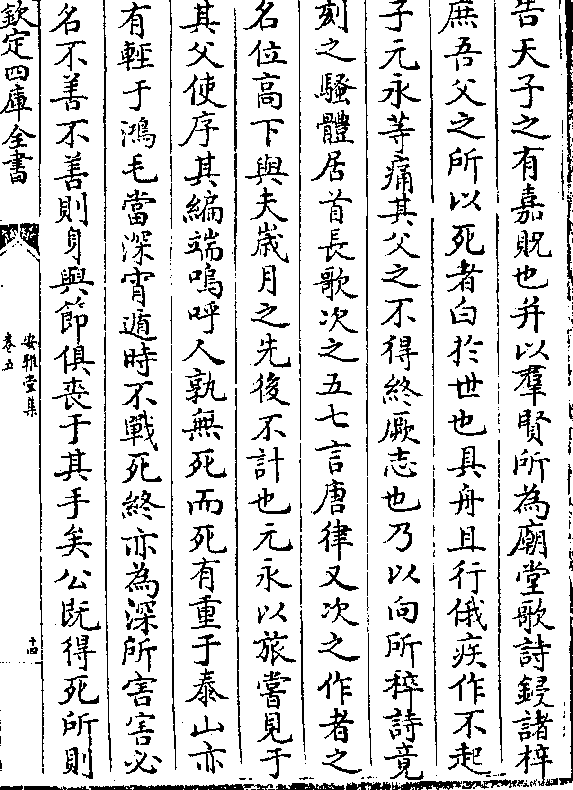 告天子之有嘉貺也并以羣賢所為廟堂歌詩鋟諸梓
庶吾父之所以死者白於世也具舟且行俄疾作不起
子元永等痛其父之不得終厥志也乃以向所稡詩竟
刻之騷體居首長歌次之五七言唐律又次之作者之
名位高下與夫嵗月之先後不計也元永以旅嘗見于
其父使序其編端嗚呼人孰無死而死有重于泰山亦
有輕于鴻毛當深宵遁時不戰死終亦為深所害害必
名不善不善則身與節俱喪于其手矣公既得死所則
欽定四庫全書
安雅堂集
卷五
十四